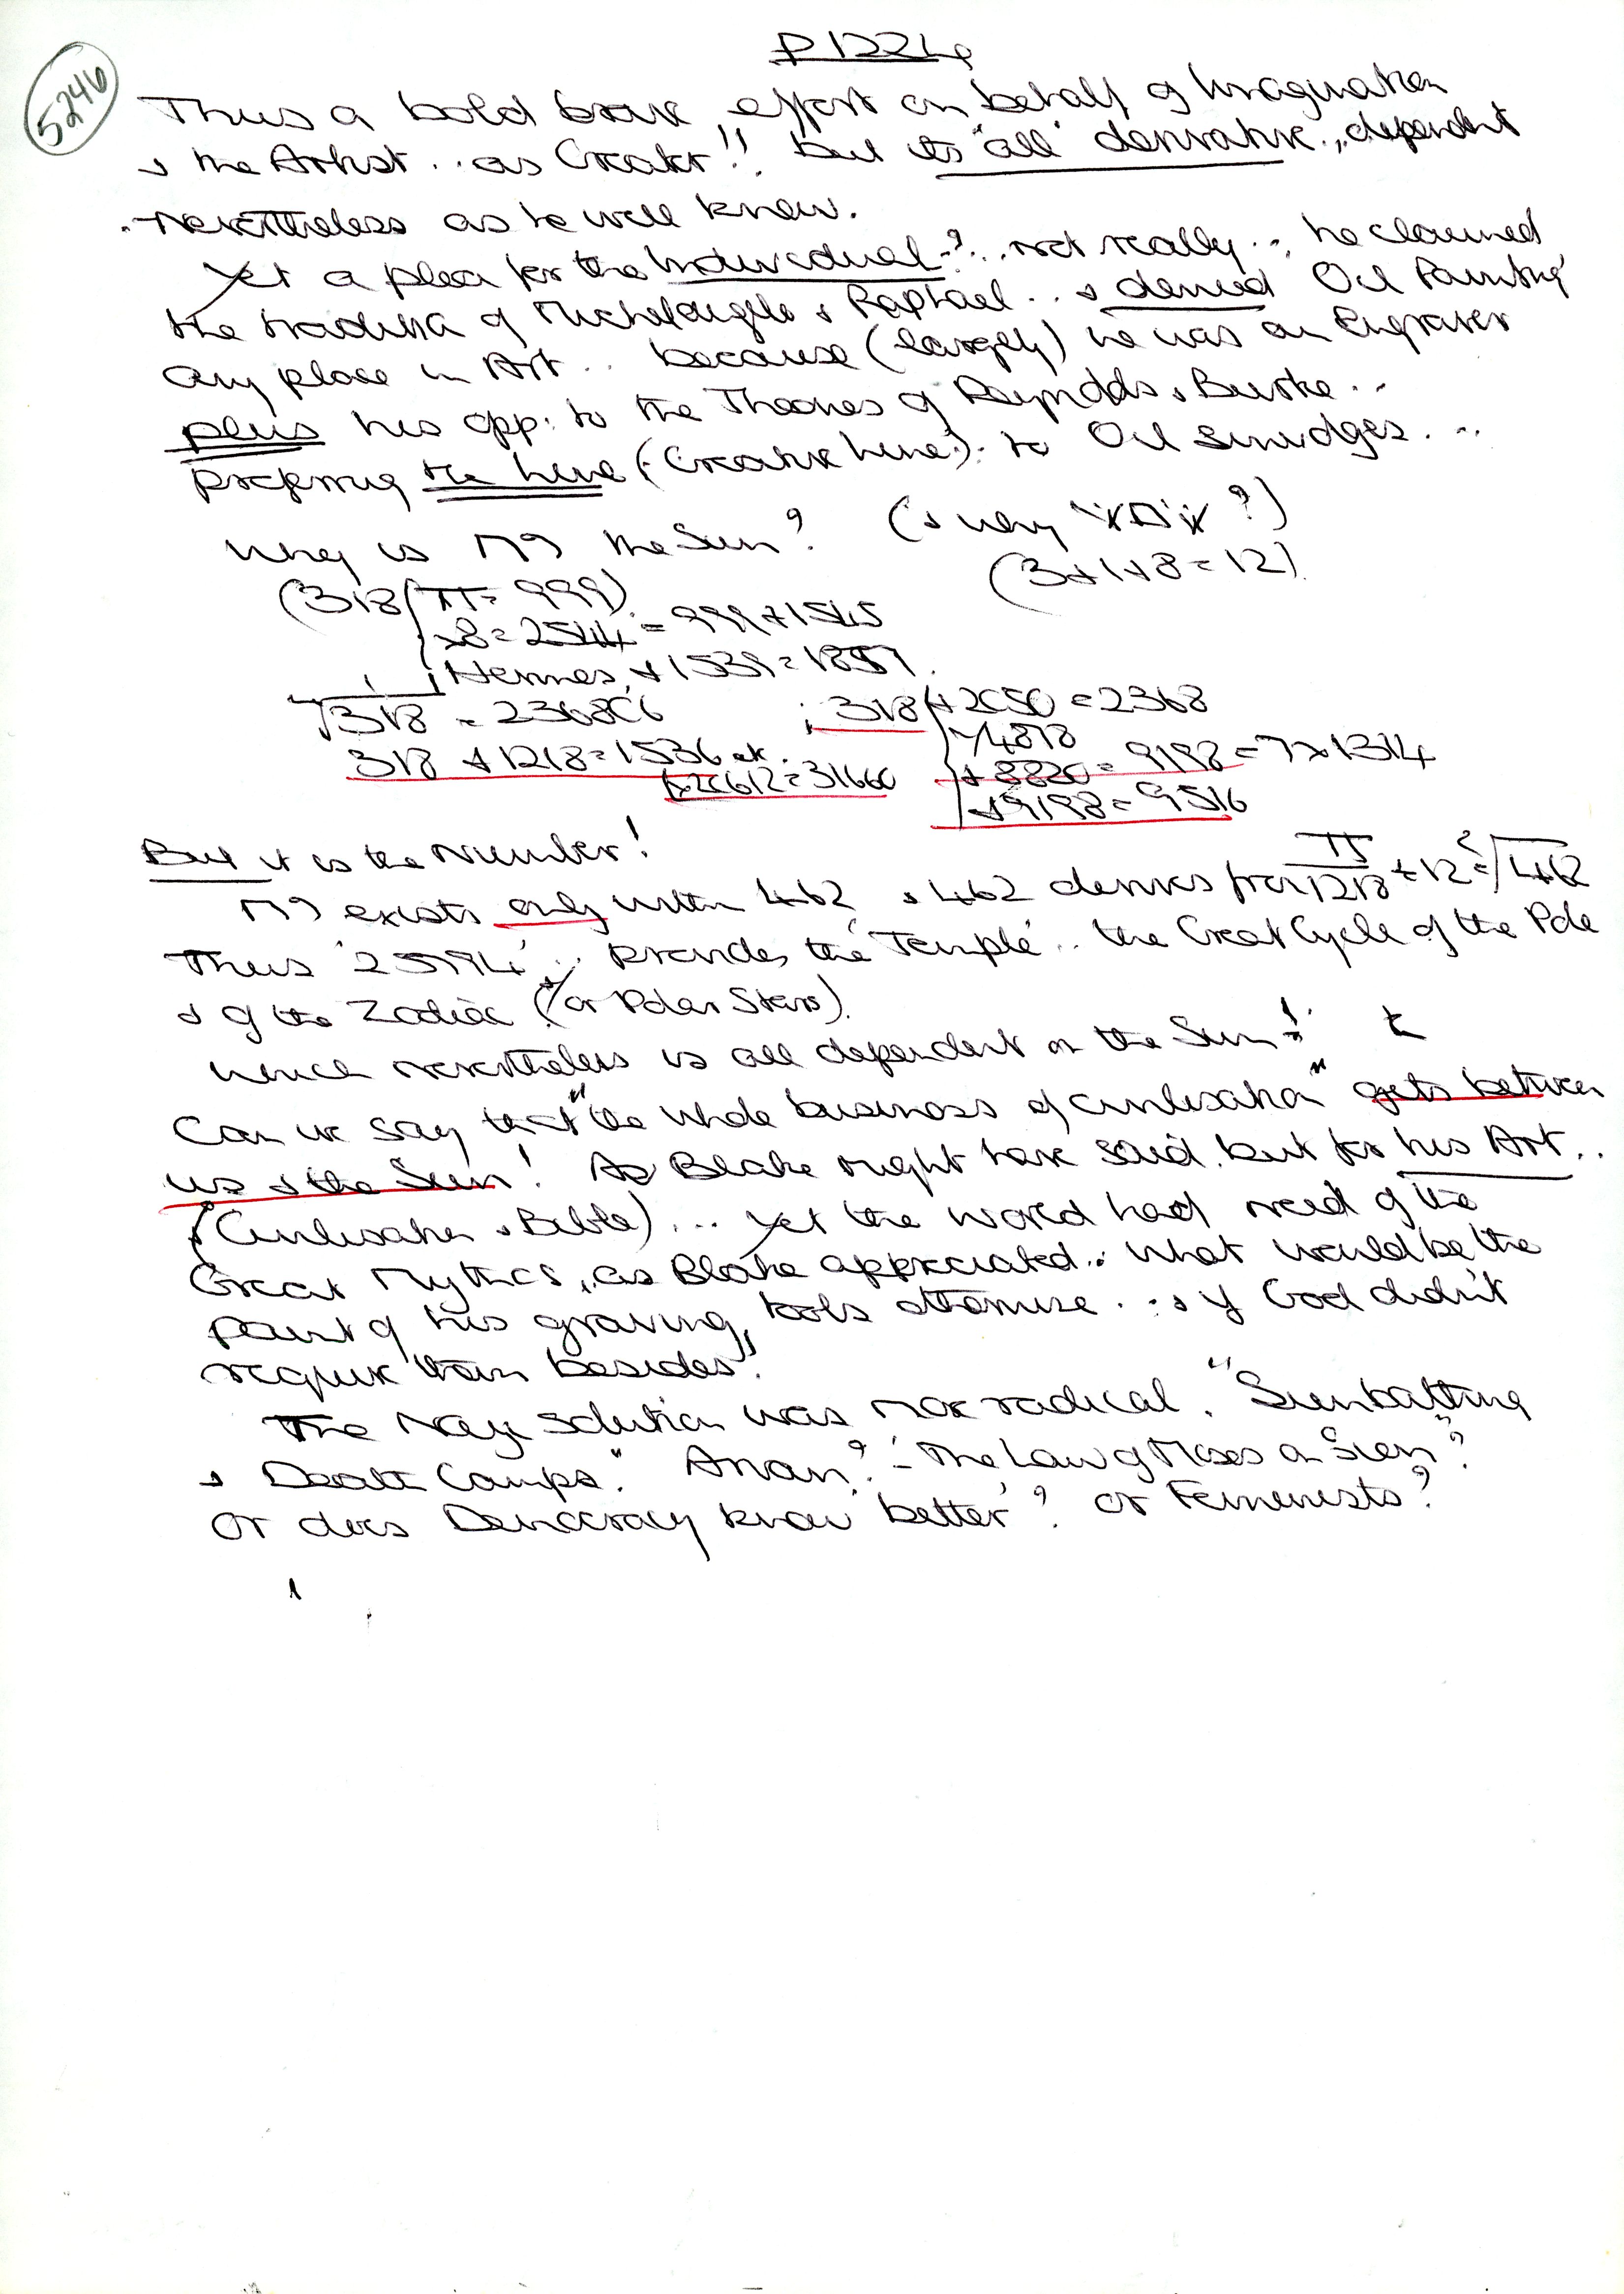 5246
P1224
Thus a bold brave effort on behalf of Imagination
& the Artist .. as Creator!! but its "all" derivative, dependent
nevertheless as he well knew.
Yet a plea for the Individual?.. not really.., he claimed
the tradition of Michelangelo & Raphael .. & denied Oil Painting
any place in Art .. because (largely) he was an Engraver
plus his opp: to the Theories of Reynolds & Burke ..
preferring the line (Creative line) to Oil smudges. ..
Why is the Sun? (& why ?)
(318 / π = 999) (3+1+8=12)
x8 = 2544 = 999+1545
Hermes, +1539=1857.
√318 = 236806 ; 318 +2050 = 2368
318 + 1218 = 1536 etc.
+8820 = 9198 = 7x1314
x20612=31660
+9198 = 9516
But it is the Number!
exists only within 462, & 462 derives from 1218 ÷ 12 = √462
Thus '25994' .. provides the 'Temple' .. the Great Cycle of the Pole
& of the Zodiac (/or Polar Stars).
Which nevertheless is all dependent on the Sun!
Can we say that "the whole business of civilisation" gets between
us & the Sun! As Blake might have said, but for his Art ..
(Civilisation & Bible) ... Yet the world had need of the
Great Mythics, as Blake appreciated. What would be the
point of his graving tools otherwise .. & if God didn't
require them besides.
The Nazi solution was more radical. "Sunbathing
& Death Camps." Aryan? - The Law of Moses or Sun?
Or does Democracy know 'better'? or Feminists?